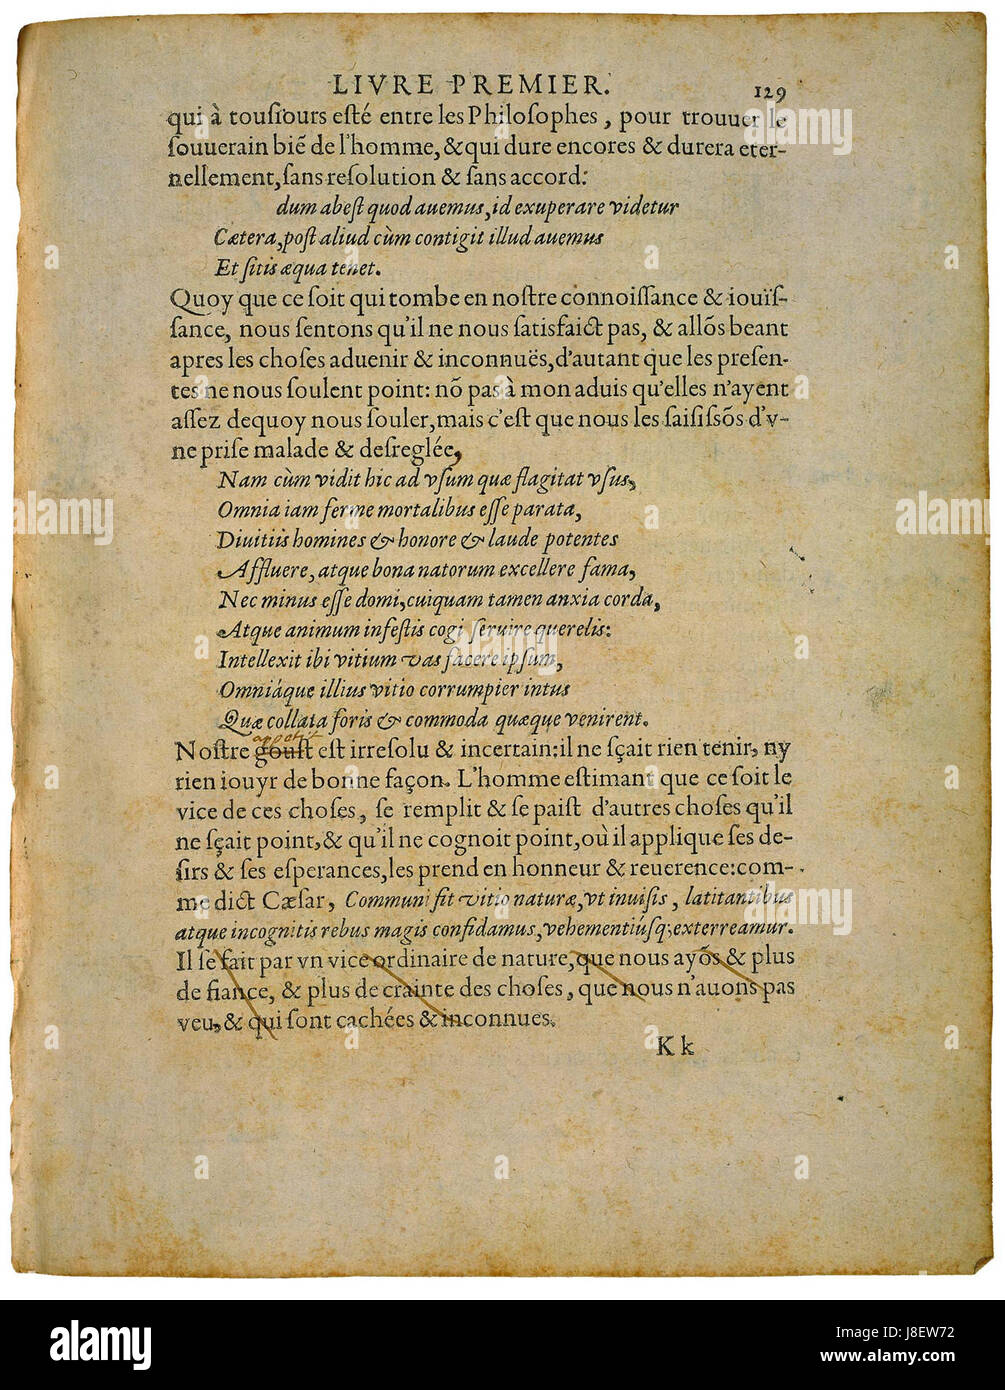 LIVRE PREMIER. 129
qui à touſiours eſté entre les Philoſophes, pour trouuer le
ſouuerain biẽ de l'homme, & qui dure encores & durera eter-
nellement, ſans reſolution & ſans accord:
dum abeſt quod auemus, id exuperare videtur
Cætera, poſt aliud cùm contigit illud auemus
Et ſitis æqua tenet.
Quoy que ce ſoit qui tombe en noſtre connoiſſance & iouïſ-
ſance, nous ſentons qu'il ne nous ſatisfaict pas, & allõs beant
apres les choſes aduenir & inconnuës, d'autant que les preſen-
tes ne nous ſoulent point: nõ pas à mon aduis qu'elles n'ayent
aſſez dequoy nous ſouler, mais c'eſt que nous les ſaiſiſsõs d'v-
ne priſe malade & deſreglée,
Nam cùm vidit hic ad vſum quæ flagitat vſus,
Omnia iam ferme mortalibus eſſe parata,
Diuitiis homines & honore & laude potentes
Affluere, atque bona natorum excellere fama,
Nec minus eſſe domi, cuiquam tamen anxia corda,
Atque animum infeſtis cogi ſeruire querelis:
Intellexit ibi vitium vas facere ipſum,
Omniáque illius vitio corrumpier intus
Quæ collata foris & commoda quæque venirent.
appetit
Noſtre gouſt eſt irreſolu & incertain: il ne ſçait rien tenir, ny
rien iouyr de bonne façon. L'homme eſtimant que ce ſoit le
vice de ces choſes, ſe remplit & ſe paiſt d'autres choſes qu'il
ne ſçait point, & qu'il ne cognoit point, où il applique ſes de-
ſirs & ſes eſperances, les prend en honneur & reuerence: com-
me dict Cæſar, Communi fit vitio naturæ, vt inuiſis, latitantibus
atque incognitis rebus magis confidamus, vehementiúſq; exterreamur.
Il ſe fait par vn vice ordinaire de nature, que nous ayõs & plus
de fiance, & plus de crainte des choſes, que nous n'auons pas
veu, & qui ſont cachées & inconnues.
K k
alamy
Image ID: J8EW72
www.alamy.com